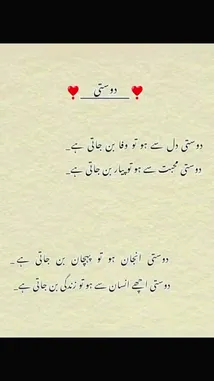 دوستی
دوستی دل سے ہو تو وفا بن جاتی ہے۔
دوستی محبت سے ہو تو پیار بن جاتی ہے۔
دوستی انجان ہو تو پہچان بن جاتی ہے۔
دوستی اچھے انسان سے ہو تو زندگی بن جاتی ہے۔